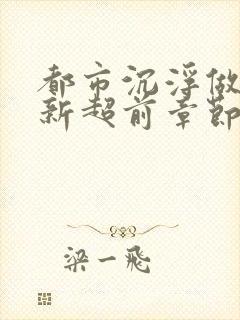 都市沉浮做
新超前章節
梁一飛